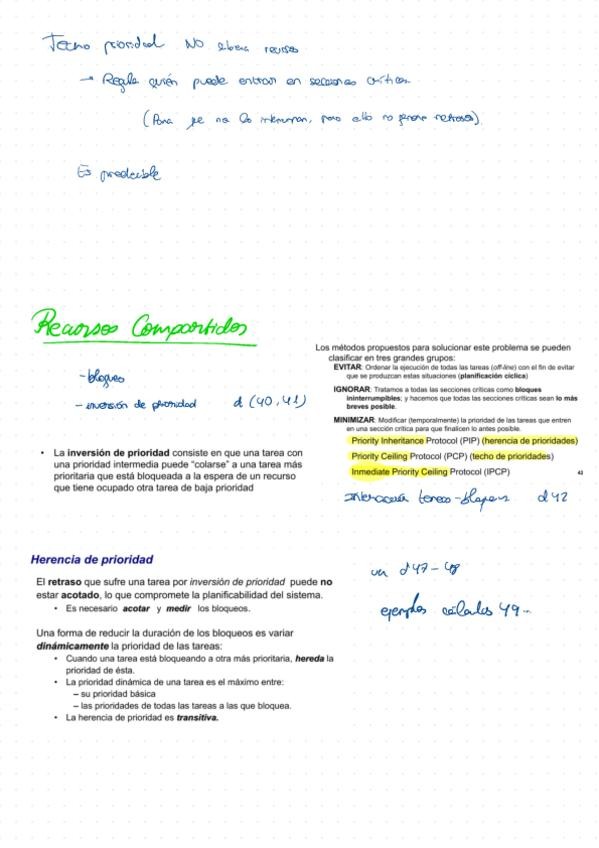 Techo prioridad NO libera recursos
→ Regula quién puede entrar en secciones críticas.
(Para que no lo interrumpan, pero ello no genera retrasos).
Es predecible
Recursos Compartidos
-bloqueo
- inversión de prioridad d (40,41)
• La inversión de prioridad consiste en que una tarea con
una prioridad intermedia puede "colarse" a una tarea más
prioritaria que está bloqueada a la espera de un recurso
que tiene ocupado otra tarea de baja prioridad
Los métodos propuestos para solucionar este problema se pueden
clasificar en tres grandes grupos:
EVITAR: Ordenar la ejecución de todas las tareas (off-line) con el fin de evitar
que se produzcan estas situaciones (planificación cíclica)
IGNORAR: Tratamos a todas las secciones críticas como bloques
ininterrumpibles; y hacemos que todas las secciones críticas sean lo más
breves posible.
MINIMIZAR: Modificar (temporalmente) la prioridad de las tareas que entren
en una sección crítica para que finalicen lo antes posible.
Priority Inheritance Protocol (PIP) (herencia de prioridades)
Priority Ceiling Protocol (PCP) (techo de prioridades)
Inmediate Priority Ceiling Protocol (IPCP)
43
tareas-bloqueos d42
Herencia de prioridad
El retraso que sufre una tarea por inversión de prioridad puede no
estar acotado, lo que compromete la planificabilidad del sistema.
• Es necesario acotar y medir los bloqueos.
Una forma de reducir la duración de los bloqueos es variar
dinámicamente la prioridad de las tareas:
• Cuando una tarea está bloqueando a otra más prioritaria, hereda la
prioridad de ésta.
• La prioridad dinámica de una tarea es el máximo entre:
– su prioridad básica
– las prioridades de todas las tareas a las que bloquea.
• La herencia de prioridad es transitiva.
ver d47-48
ejemplos cálculos 49...